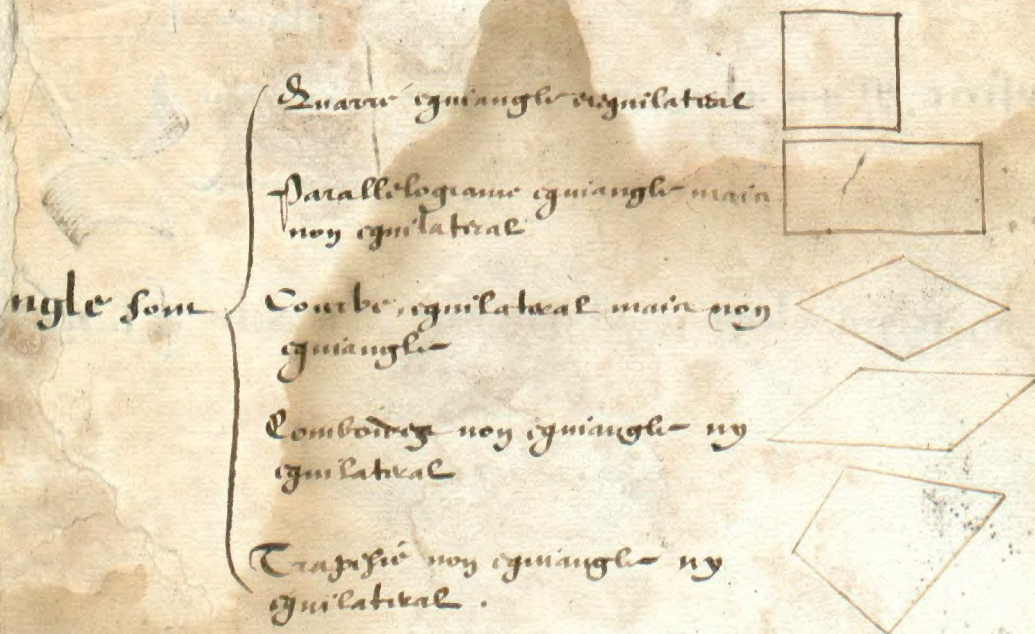 Quarré equiangle et equilateral
Parallelograme equiangle mais
non equilateral
ngle sont
Rombe, equilateral mais non
equiangle
Romboides non equiangle ny
equilateral
Trapesie non equiangle ny
equilateral.